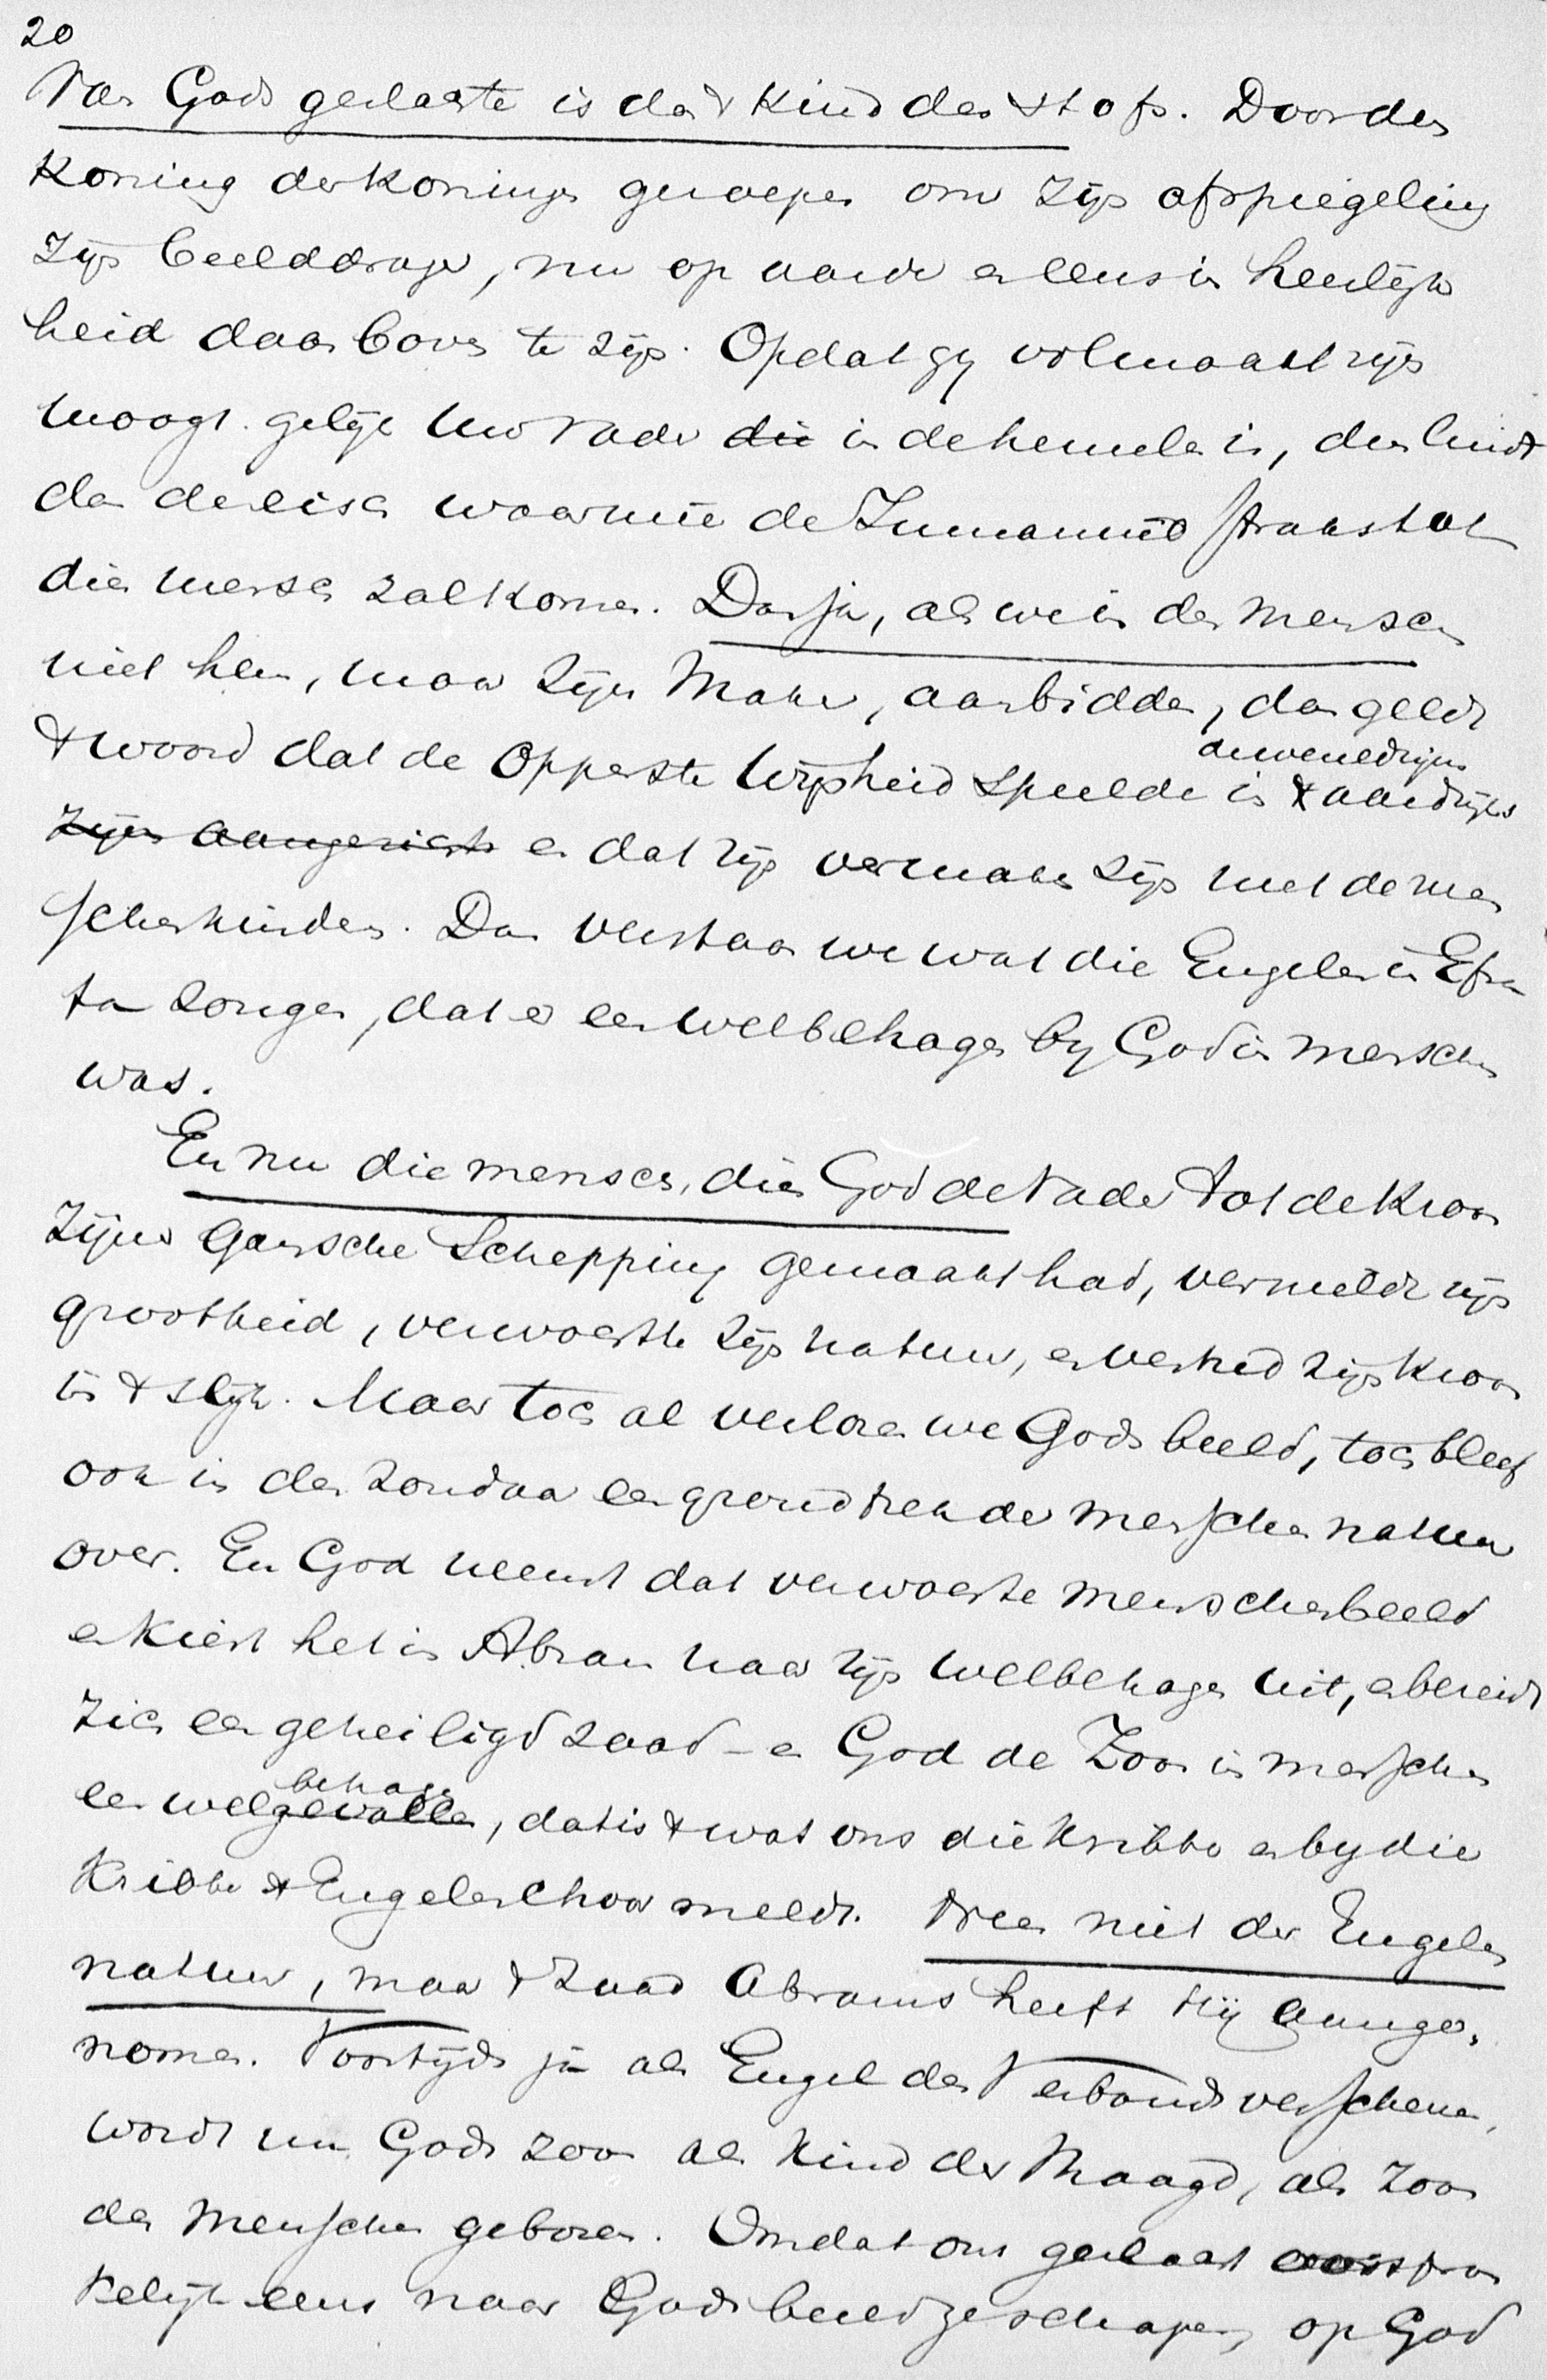 20
Van Gods geslachte is dat kind des stofs. Door den
Koning der Koningen geroepen om Zijn afspiegeling
Zijn beelddrager, nu op aarde en eens in heerlijk
heid daar boven te zijn. Opdat gy volmaakt zijn
moogt gelijk Uw Vader die in de hemelen is, dus luidt
dan de eisch waarmeê de Immanuël straks tot
dien mensch zal komen. Dan ja, als we in den mensch
niet hem, maar Zijn Maker, aanbidden, dan geldt
't woord dat de Opperste Wijsheid speelde in 't aardrijk
Zijn aangezicht en dat zijn vermaken zijn met de men
schenkinderen. Dan verstaan we wat die Engelen in Efra
ta zongen, dat er een welbehagen by God in menschen
was.
En nu die mensch, dien God de Vader tot de Kroon
Zijner gansche Schepping gemaakt had, vernielde zijn
grootheid, verwoestte zijn natuur, en vertred zijn kroon
in 't slijk. Maar toch al verloren we Gods beeld, toch bleef
ook in den zondaar een grondtrek der menschen natuur
over. En God neemt dat verwoeste menschenbeeld
en kiest het in Abram naar zijn welbehagen uit, en bereidt
zich een geheiligd zaad – en God de Zoon in menschen
behagen
een welgevallen, dat is 't wat ons die kribbe en by die
Kribbe 't Engelenchoor meldt. Neen niet der Engelen
natuur, maar 't zaad Abrams heeft Hij aange-
nomen. Voortijds ja als Engel des Verbonds verschenen,
wordt nu Gods zoon als kind der Maagd, als Zoon
des Menschen geboren. Omdat ons geslacht oorspron
kelijk eens naar Gods beeld geschapen, op God